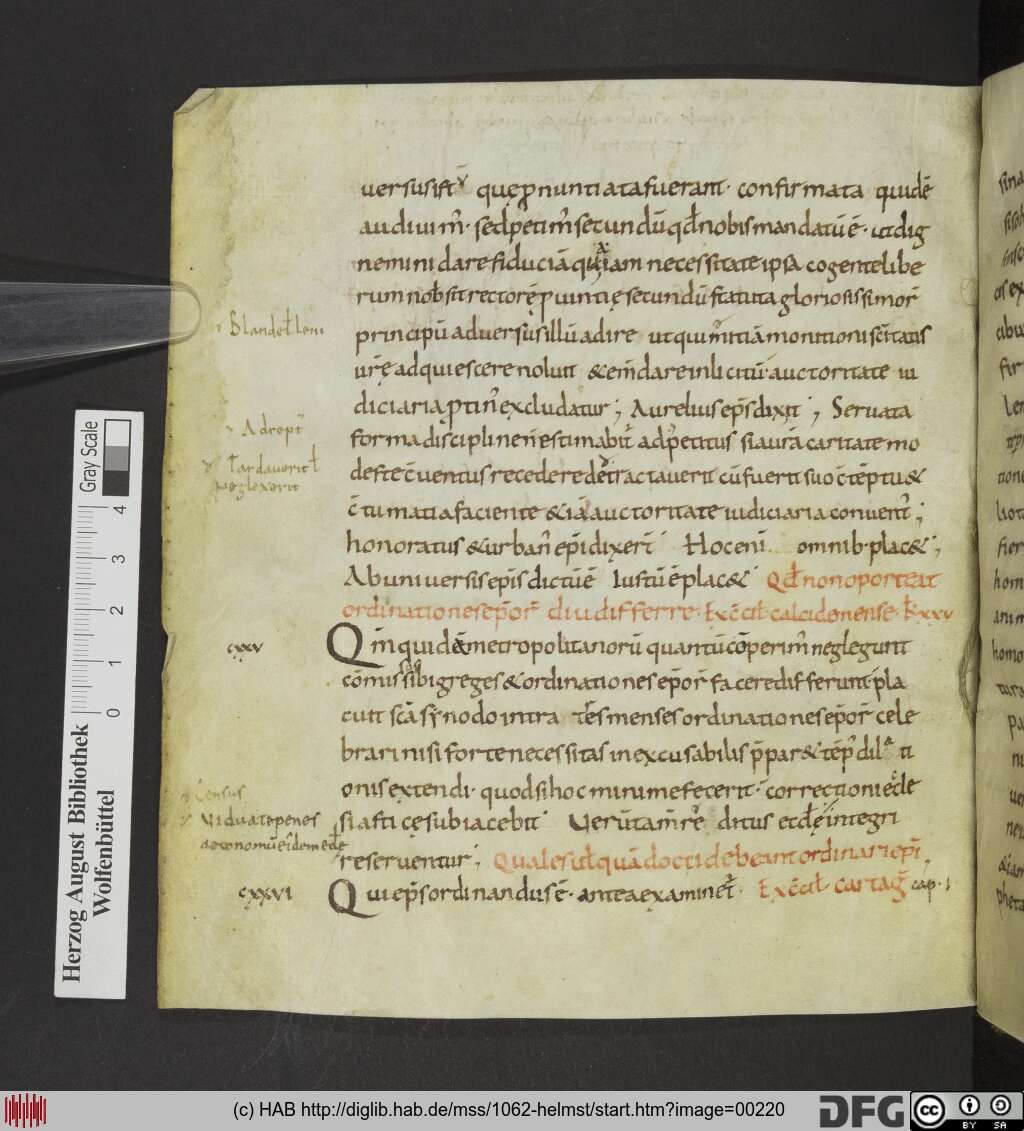 uersus istū quę ꝓnuntiata fuerant· confirmata quidē
audiuim̄· sed petim̄ secundū qd̄ nobis mandatū ē· ut dig
nemini dare fiduciā quia iam necessitate ipsa cogente libe
rum nob̄ sit rectorē ꝓuintię secundū statuta gloriosissimor̄
principū aduersus illū adire ut qui mitti ammonitioni sc̄itatis
ur̄e adquiescere noluit & em̄dare inlicitū· auctoritate iu
diciaria ꝓtin̄ excludatur; Aurelius ep̄s dixit; Seruata
forma discipline n̄ estimabit̄ adpetitus si aura caritate mo
deste c̄uentus recedere detractauerit cū fuerit suo c̄tēptu &
c̄tumatia faciente & iā auctoritate iudiciaria conuent̄;
honoratus & urban̄ ep̄i dixer̄ Hoc eni omnib· plac&;
Ab uniuersis ep̄is dictū ē Iustū ē plac& Qd̄ non oporteat
ordinationes ep̄or̄ diu differre· Ex c̄cil̄ calcidonense· k̄ xxv
cxxv
Qm̄ quidā metropolitanorū quantū cōperim̄ neglegunt
cōmissi sibi greges & ordinationes ep̄or̄ facere differunt· pla
cuit sc̄ā synodo intra tres menses ordinationes ep̄or̄ cele
brari nisi forte necessitas inexcusabilis p̄par& tēp̄ dilati
onis extendi· quod si hoc minime fecerit· correctioni eccle
siasticę subiacebit Uerūtam̄ re ditus eccl̄e integri
reseruentur; Quales ul̄ quā docti debeant ordinari ep̄i
cxxvi
Qui ep̄s ordinandus ē· antea examinet̄· Ex c̄cil̄ cartaḡ cap· i
Blande l̄ leni
Adrept
Tardauerit l̄
neglexerit
Census
Viduate penes
aeconomū eidem eccl̄e
Herzog August Bibliothek
Wolfenbüttel
Gray Scale
0 1 2 3 4
(c) HAB http://diglib.hab.de/mss/1062-helmst/start.htm?image=00220
DFG
cc
BY SA